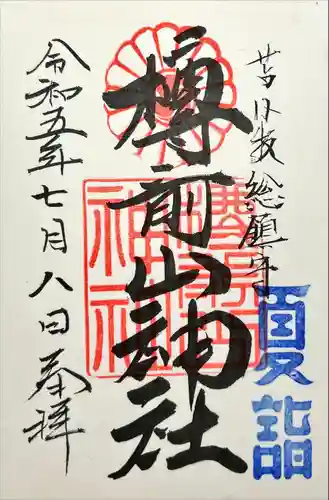 苫小牧総鎮守
樽前山神社
令和五年七月八日奉拝
夏詣